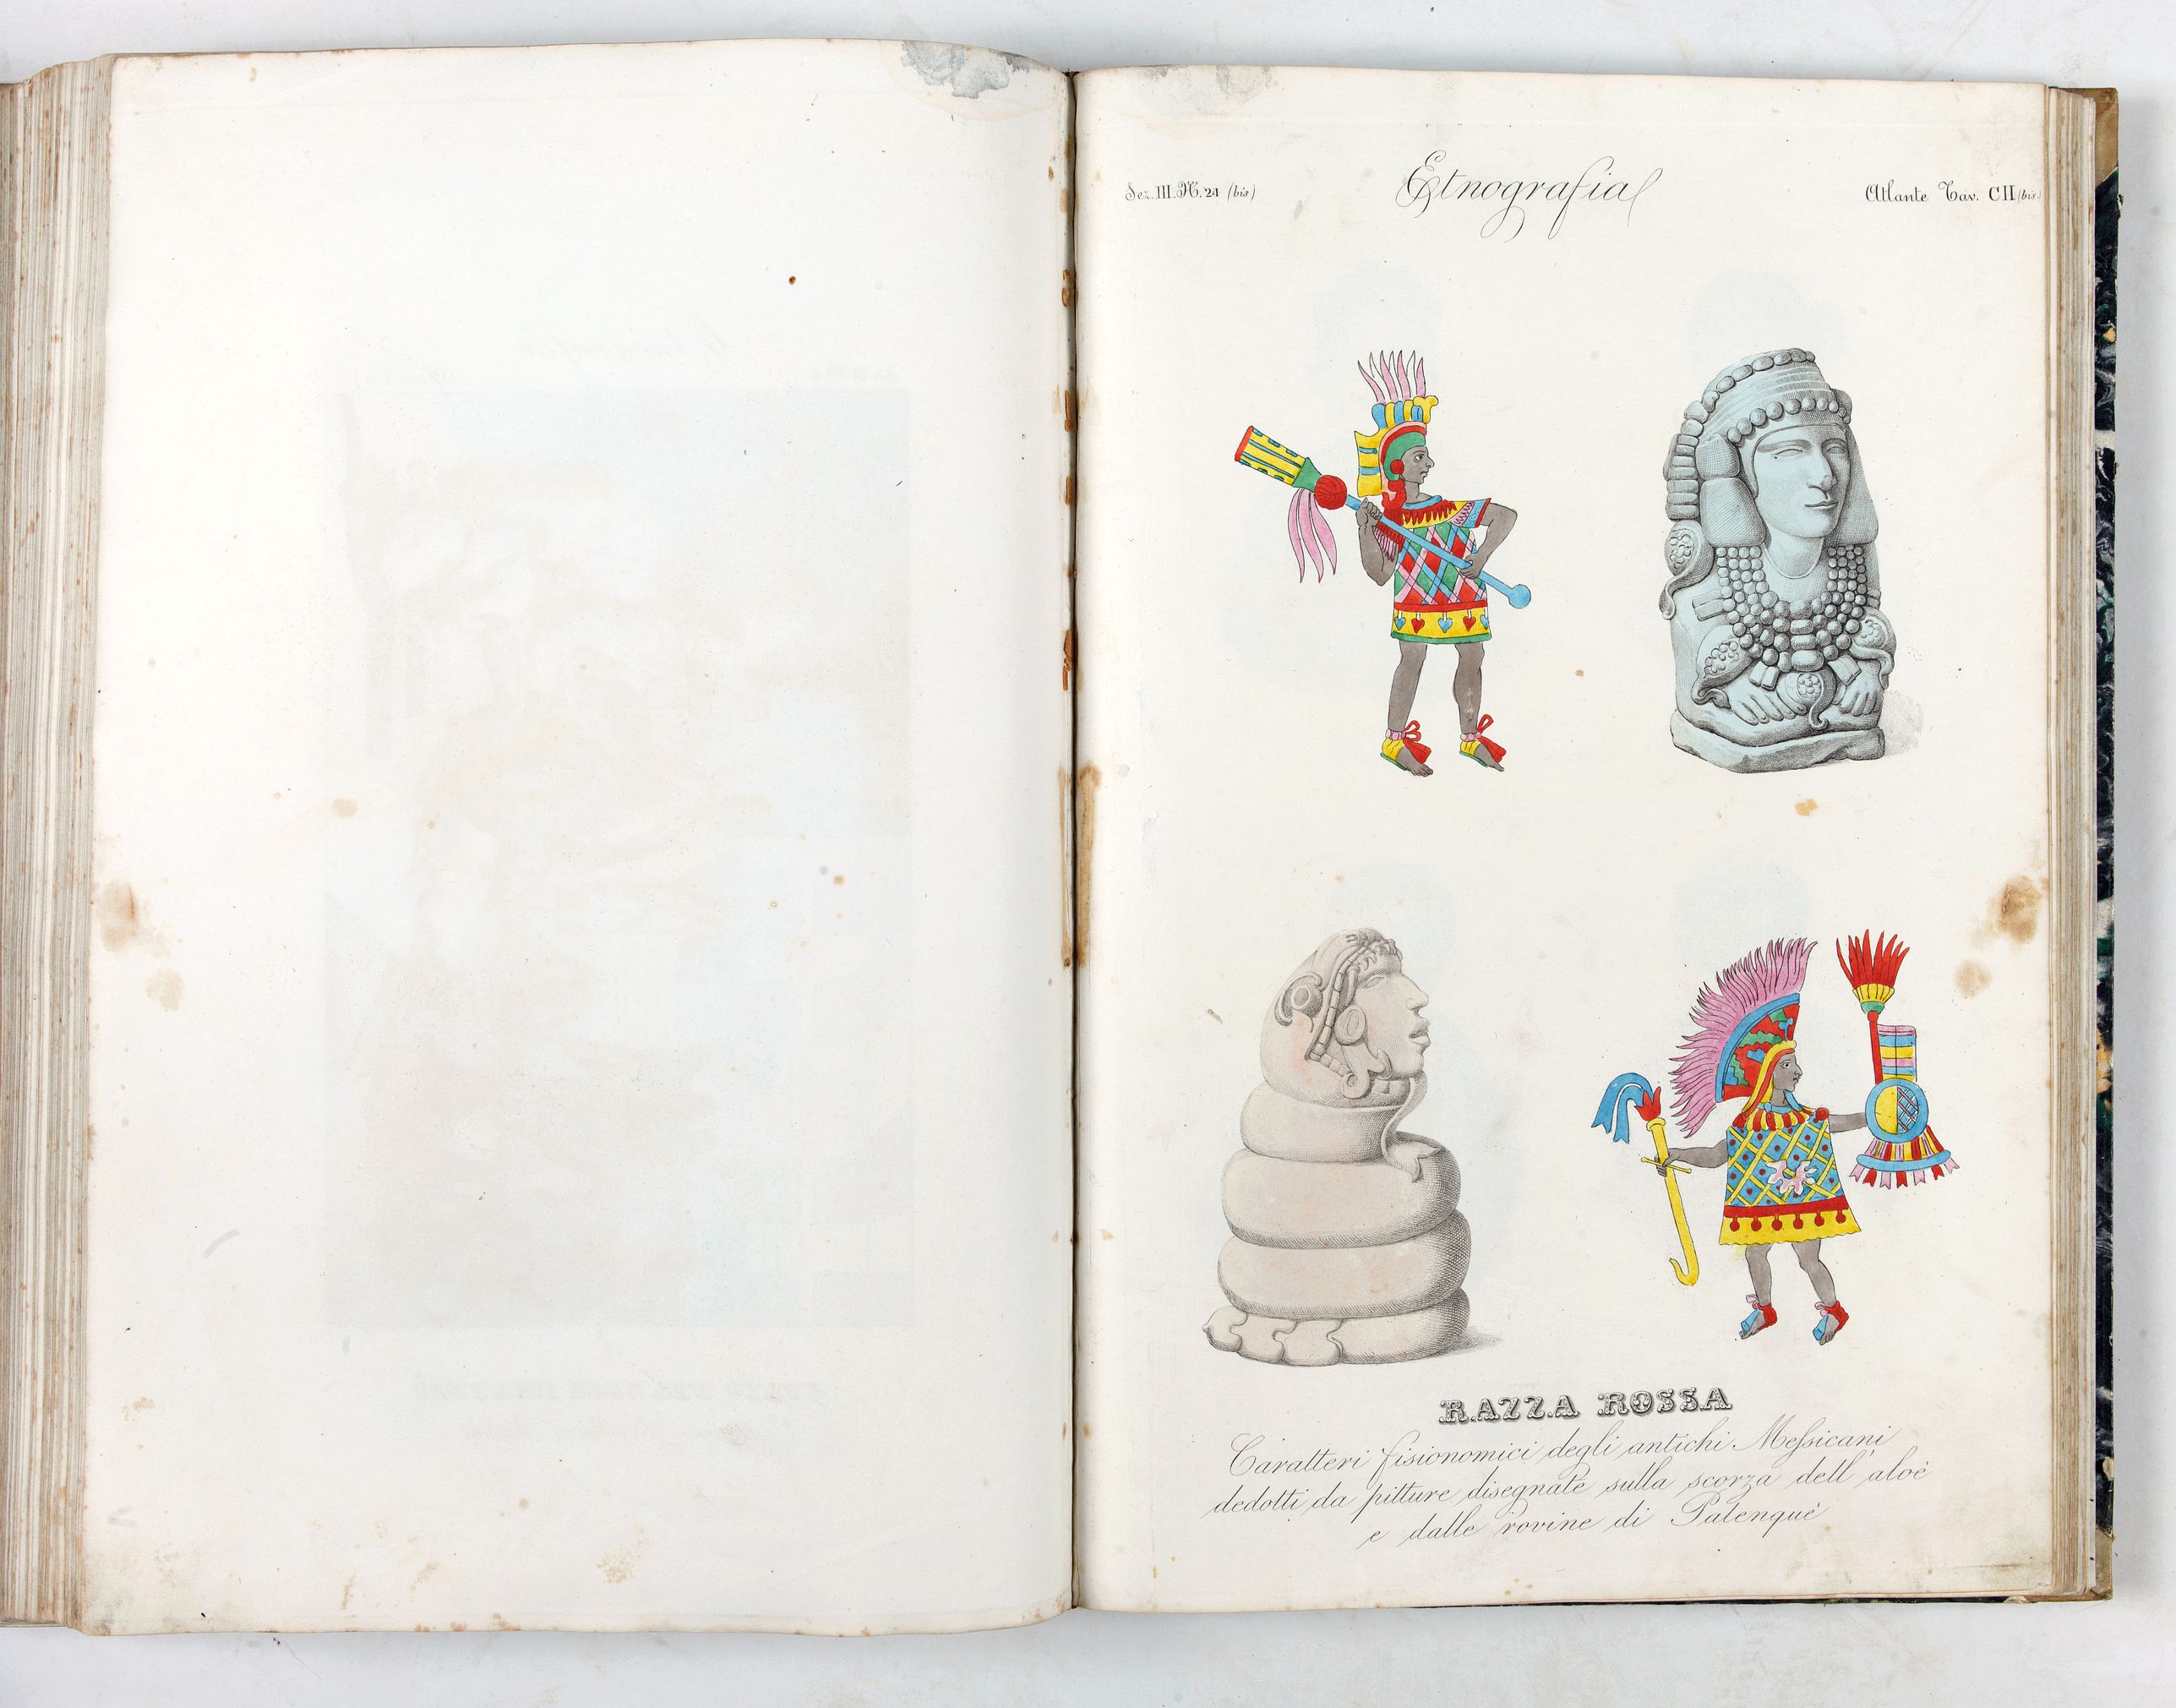 Sez. III. N. 21 (bis)
Etnografia
Atlante Tav. CII (bis)
RAZZA ROSSA
Caratteri fisionomici degli antichi Messicani
dedotti da pitture disegnate sulla scorza dell'aloè
e dalle rovine di Palenquè